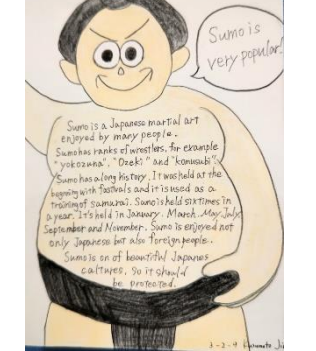 Sumo is
very popular!
Sumo is a Japanese martial art
enjoyed by many people.
Sumo has ranks of wrestlers, for example
"yokozuna", "Ozeki" and "konusubi".
Sumo has a long history. It was held at the
begining with fastvals and it is used as a
training of samurai. Sumo is held six times in
a year. It's held in January. March. May. July.
September and November. Sumo is enjoyed not
only Japanese but also foreign people..
Sumo is on of beautiful Japanes
caltures, so it should
be protected.
3-2-9